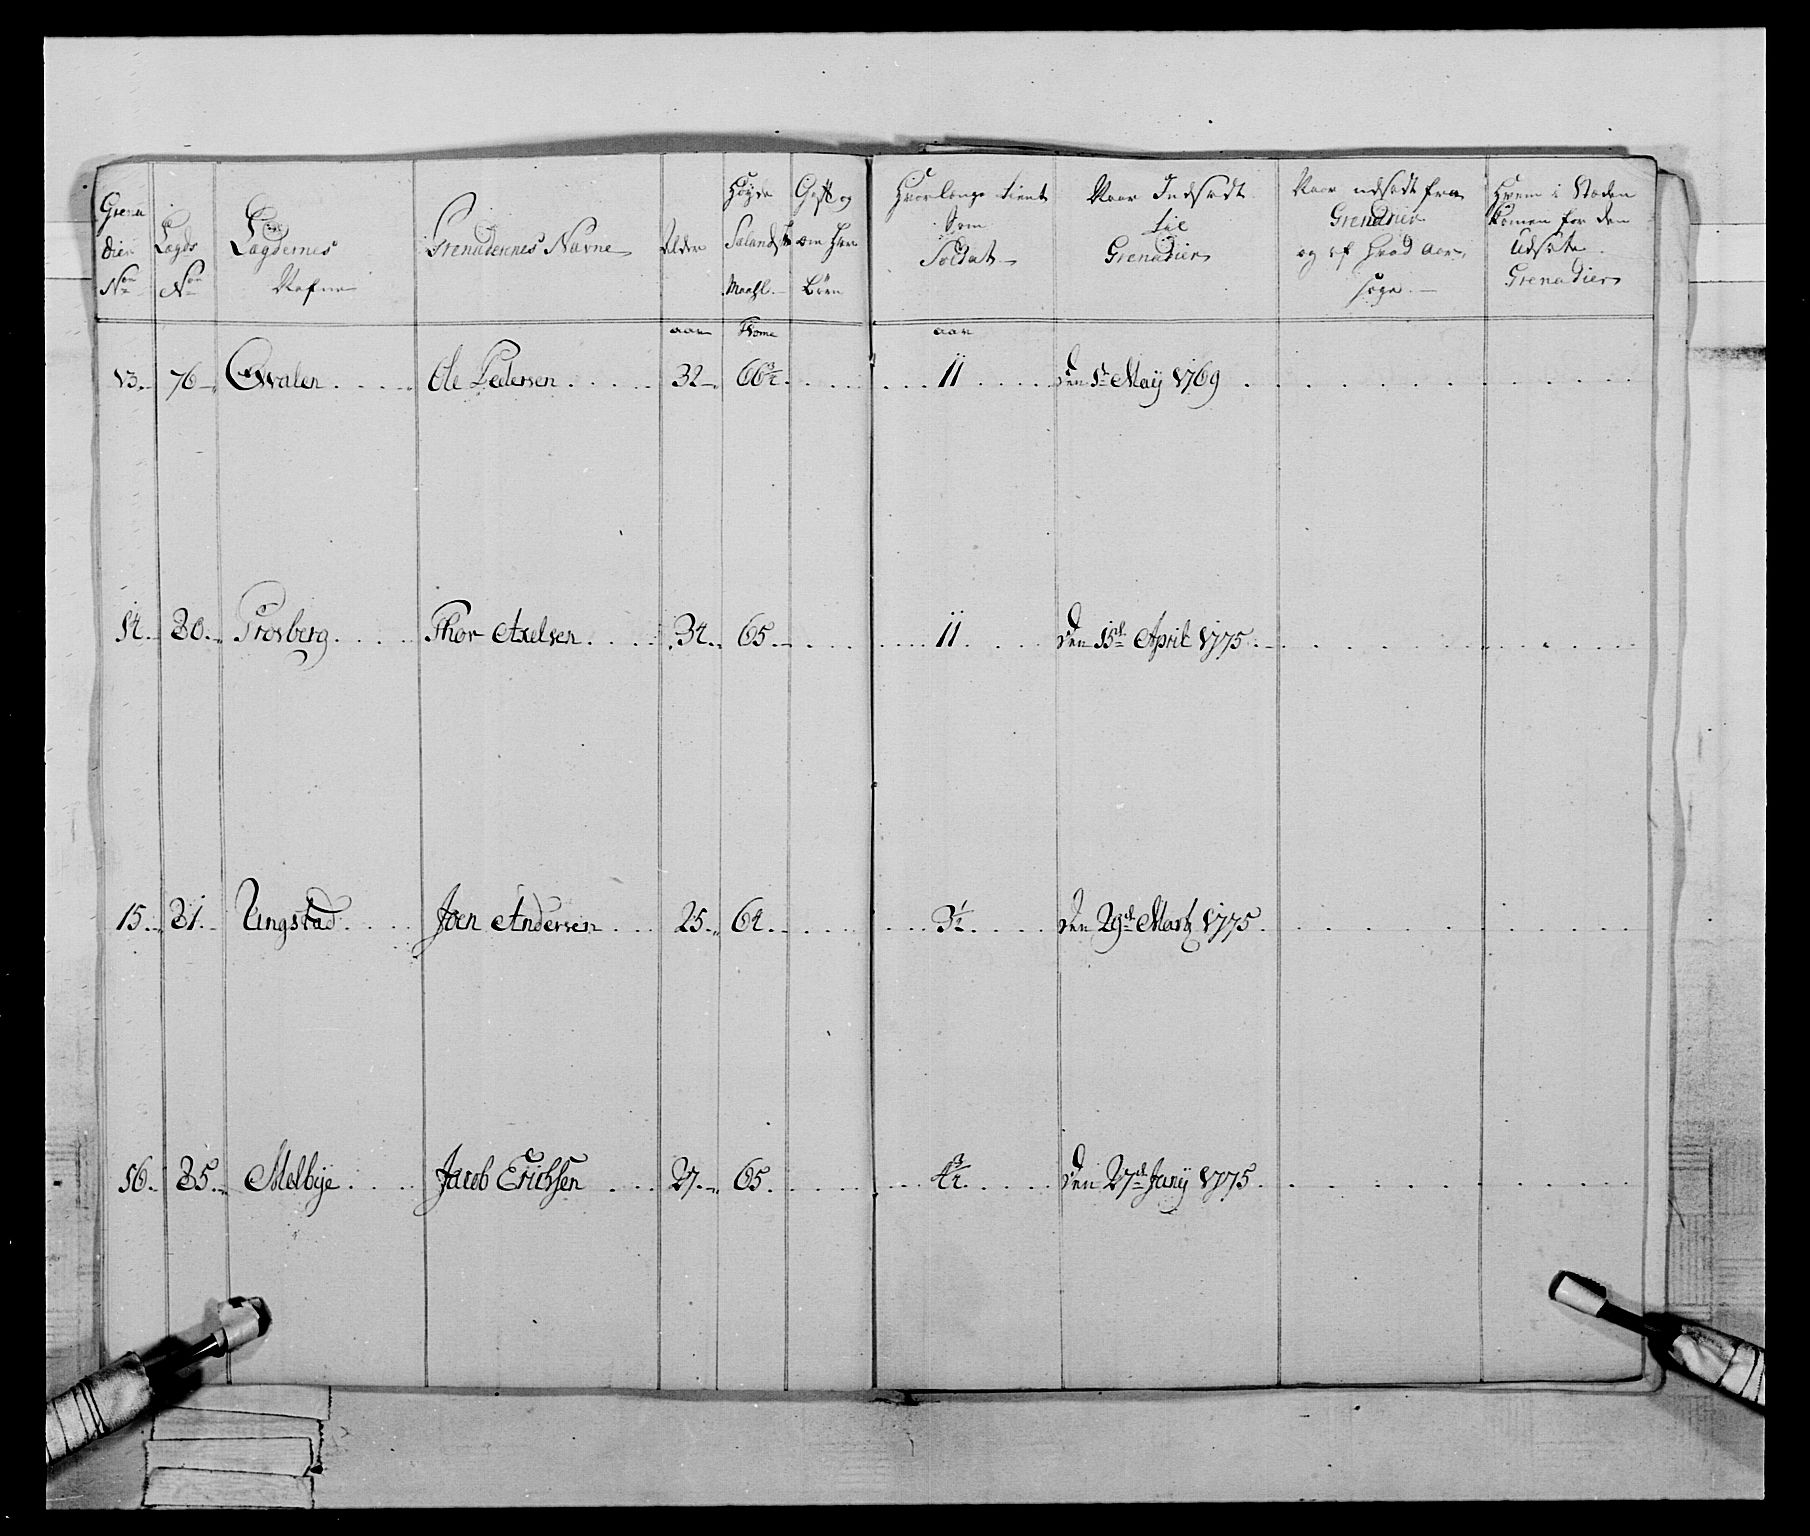 Grena
dier
No
Lægds
No
Lægdernes
Nafne
Grenaderernes Navne
Alder
Høyde
Sælandsk
Maahl
Gift og
om Har
Børn
Hvorlænge tient
Som
Soldat
Naar Indsadt
til
Grenadier
Naar udsadt fra
Grenadier
og af hvad aar,
sage.
Hvem i Stæden
komen for den
Udsate
Grenadier
aar Tome aar
13. 76 Qvalen Ole Pedersen 32 66 3/4 11 den 1te Maij 1769
14. 80. Frosberg Thor Axelsen 34. 65 11 den 15de April 1775
15. 81. Ungstad Joen Andersen 25. 64 3 1/2 den 29de Martz 1775
16. 85. Melbye Jacob Erichsen 27. 65. 4 3/4 den 27de Junij 1775